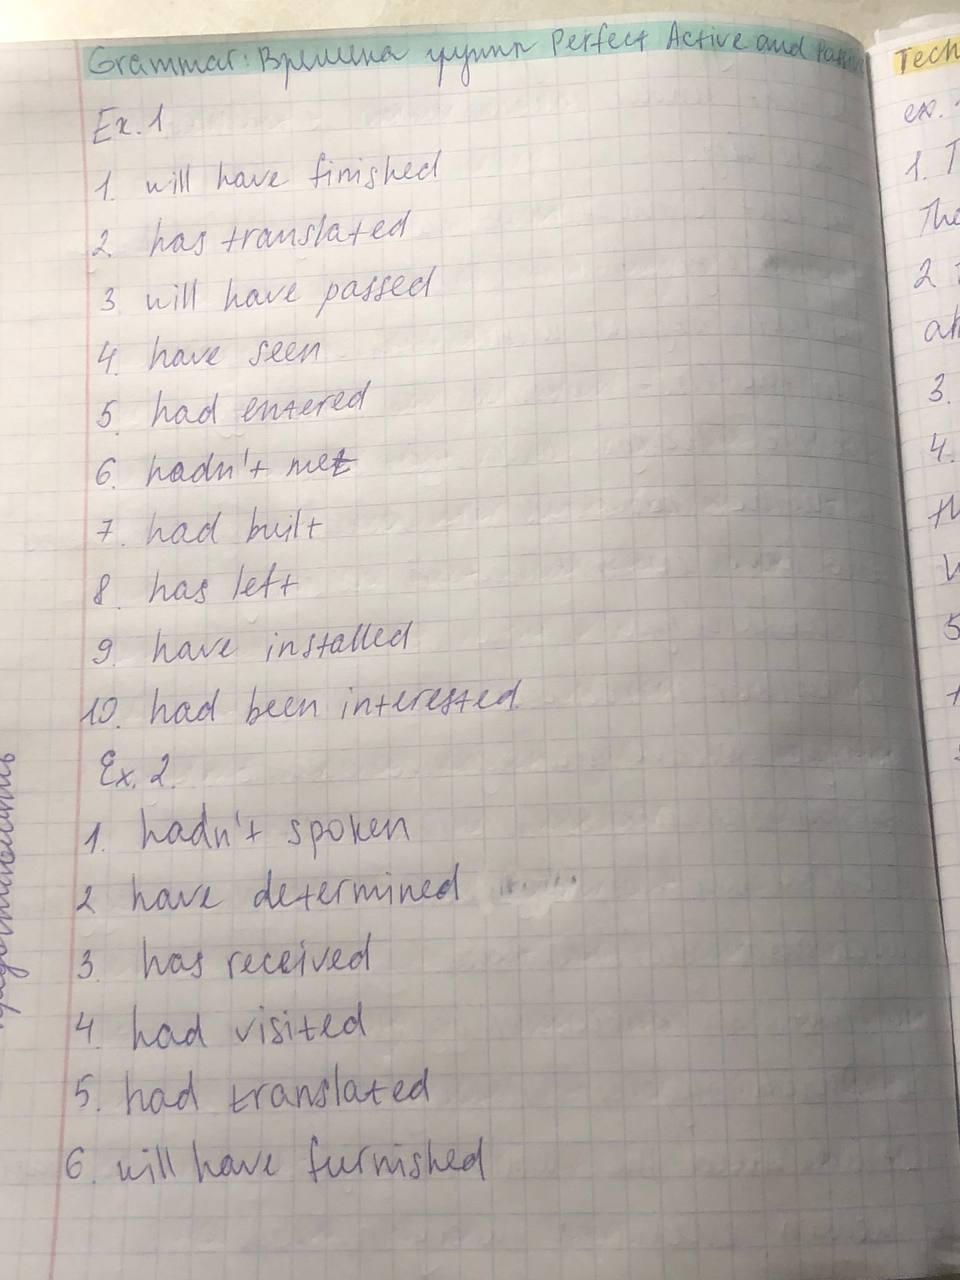 Grammar: Времена групп Perfect Active and
Ex. 1
1. will have finished
2. has translated
3. will have passed
4. have seen
5. had entered
6. hadn't met
7. had built
8. has left
9. have installed
10. had been interested.
Ex. 2.
1. hadn't spoken
2 have determined
3. has received
4. had visited
5. had translated
6. will have furnished
Tech
ex.
1. T
The
2
3.
4.
5